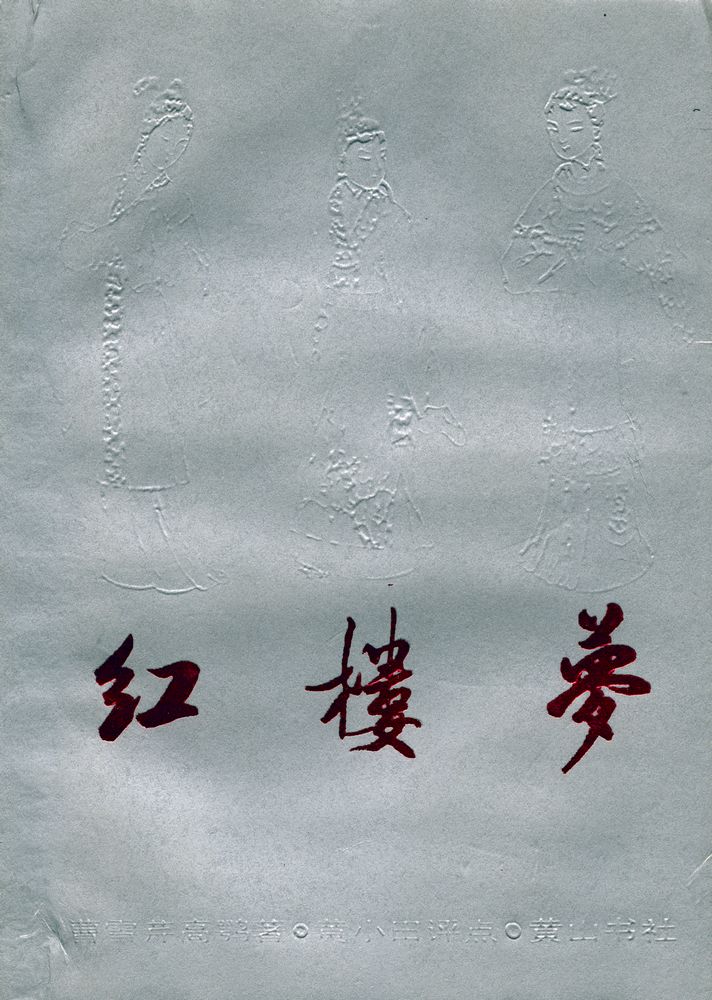 红樓夢
曹雪芹高鹗著○黄小田评点○黄山书社